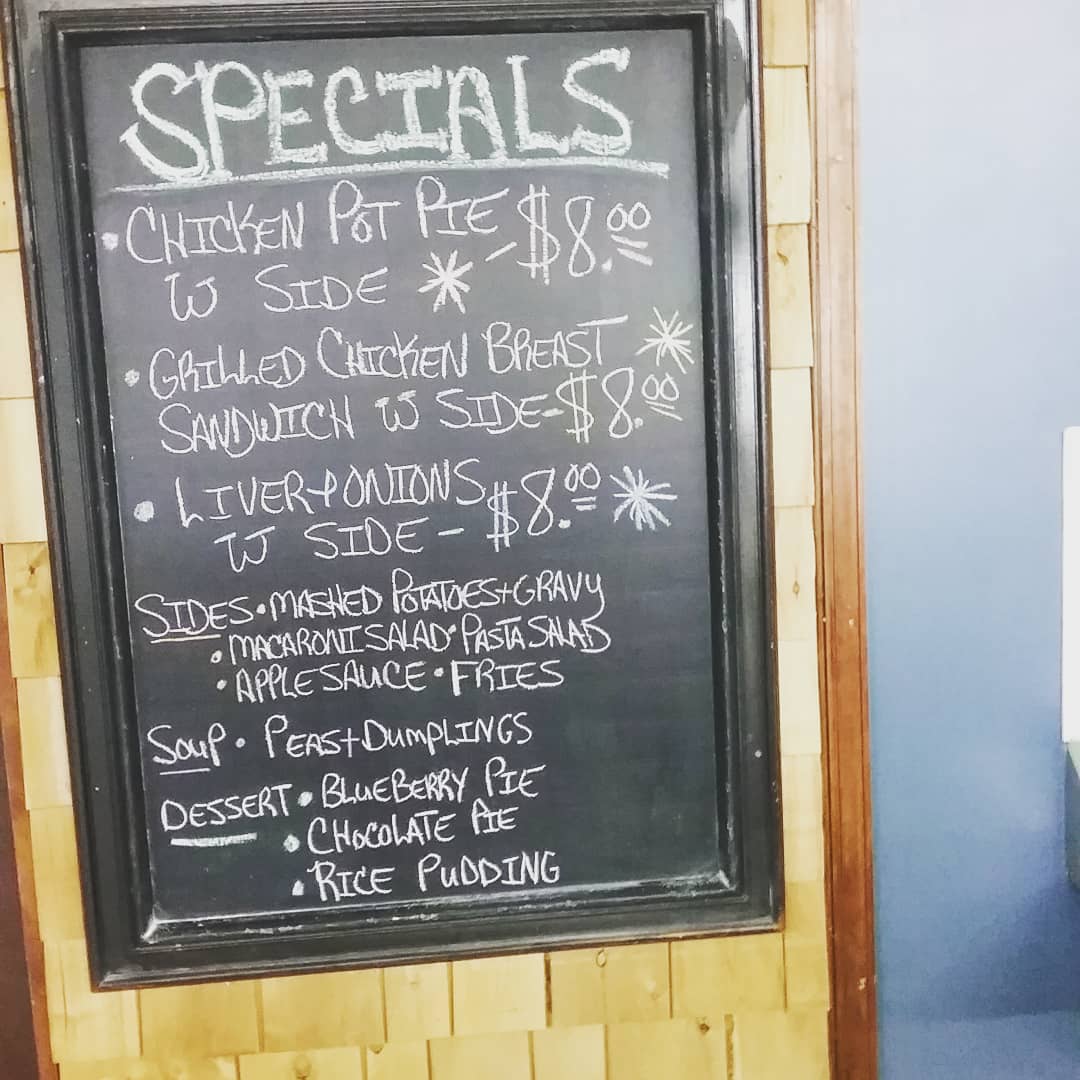 SPECIALS
• CHICKEN POT PIE - $8.00
W SIDE *
• GRILLED CHICKEN BREAST *
SANDWICH W SIDE - $8.00
• LIVER + ONIONS $8.00 *
W SIDE -
SIDES • MASHED POTATOES + GRAVY
• MACARONI SALAD • PASTA SALAD
• APPLE SAUCE • FRIES
SOUP • PEAS + DUMPLINGS
DESSERT • BLUEBERRY PIE
• CHOCOLATE PIE
• RICE PUDDING